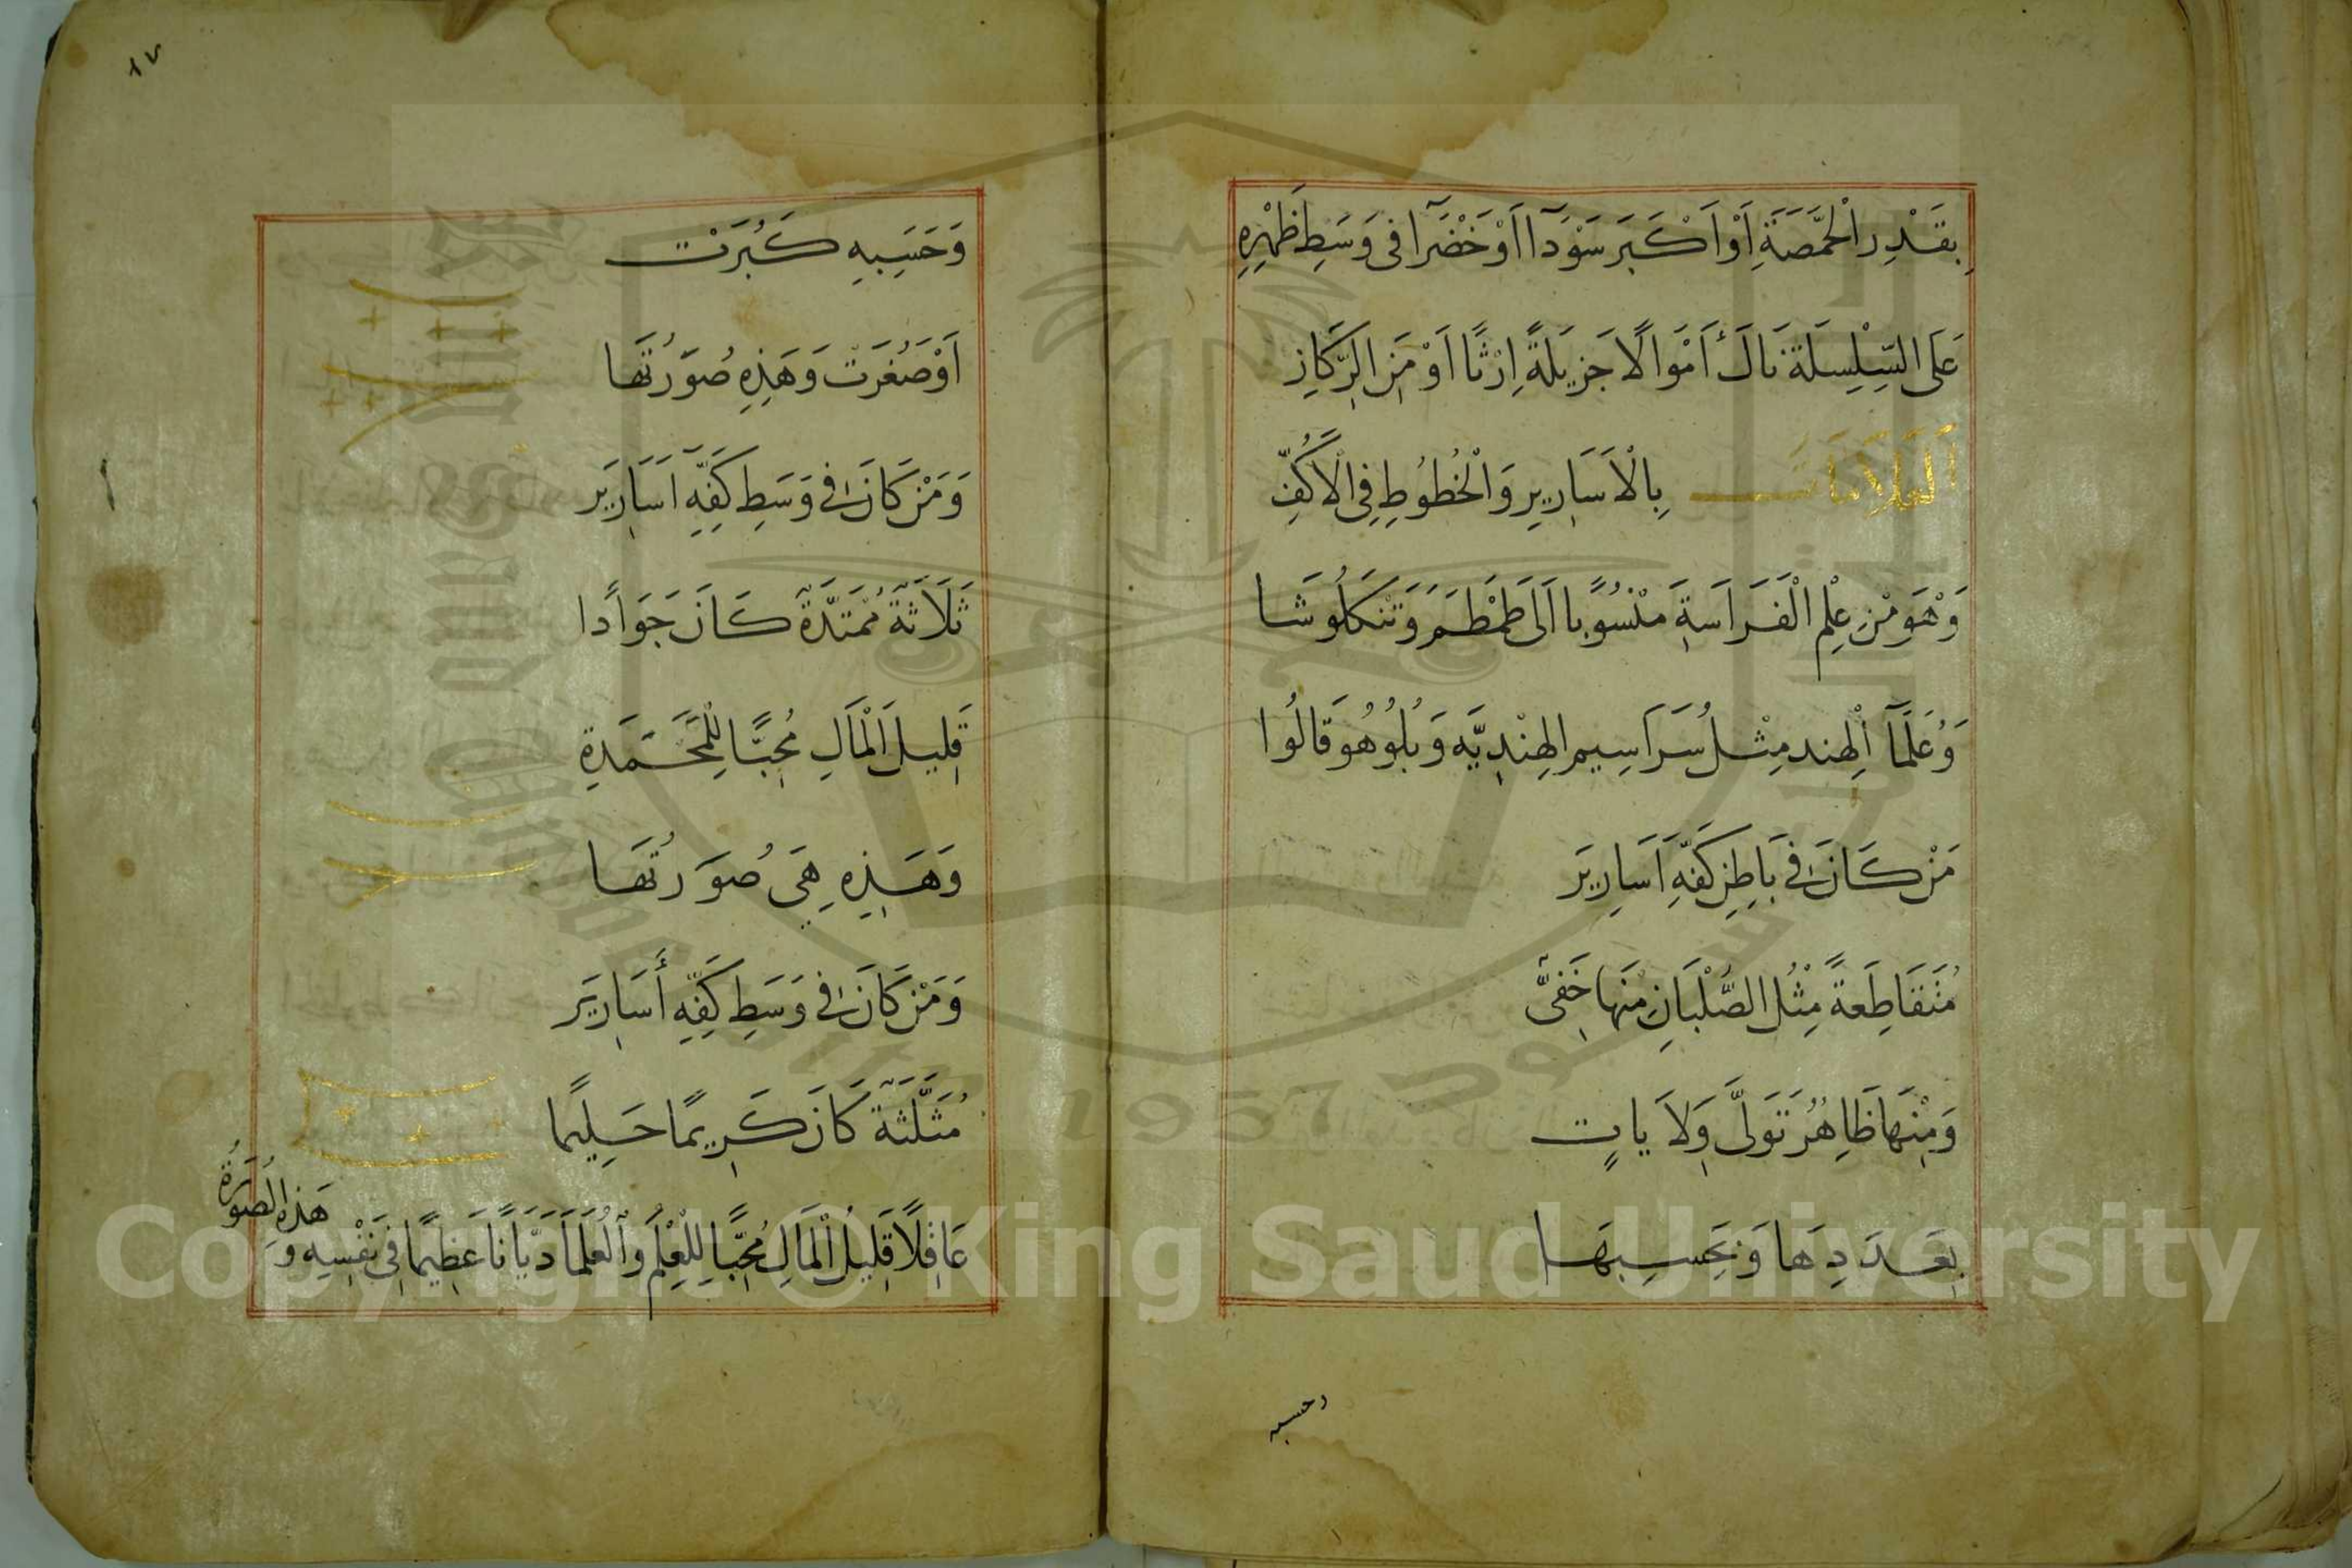 بِقَدْرِ الْحِمَّصَةِ اَوْ اَكْبَرَ سَوْدَآ اَوْ خَضْرَآ فى وَسَطِ ظَهْرِهِ
عَلَى السِّلْسِلَة نَالَ اَمْوَالًا جَزِيلَةً اِرْثًا اَوْ مَنَ الرِّكَازِ
اَلْعَلَامَات بِالْاَسَارِيرِ وَالْخُطُوطِ فِى الْاَكُفِّ
وَهْوَ مْنِ عِلْمِ الْفَرَاسَةِ مَنْسُوبًا اَلَى طَمْطَمَ وَتَنْكَلُوشَا
وَعُلَمَآ الْهِند مِثْلُ سَرَاسِيم الهِنْدِيَّه وَبُلُوهُو قَالُوا
مَنْ كَانَ فِى بَاطِنِ كَفِّهِ اَسَارِيرَ
مُتَقَاطِعَةً مِثْلُ الصُّلْبَانِ مِنَها خَفِىٌّ
وَمِنْهَا ظَاهِرُ تَوَلَّى وَلَا يات
بِعَدَدِهَا وَبَحَسبِهَا
وحسبه
١٧
وَحَسَبِهِ كَبُرَتْ
اَوْ صَغُرَتْ وَهَذِهِ صُوَرُتُهَا
وَمَنْ كَانَ فِى وَسَطِ كَفِّهِ اَسَارِيرَ
ثَلَاثَةً مُمْتَدَّةً كَانَ جَوَادًا
قَلِيلَ الْمَالِ مُحِبًّا لِلْمَحَمَدِةِ
وَهَذِهِ هِىَ صُوَرُتُهَا
وَمَنْ كَانَ فِى وَسَطِ كَفِّهِ أَسَارِيرَ
مُثَلَّثَةً كَانَ كَرِيمًا حَلِيمًا
عَاقِلًا قَلِيلُ الْمَالِ مُحِبًّا لِلْعِلْمِ وَالْعُلَمَآ دَيَّانًا عَظِيمًا فِى نَفْسِهِ وَ
هَذِهِ الصُورَةُ